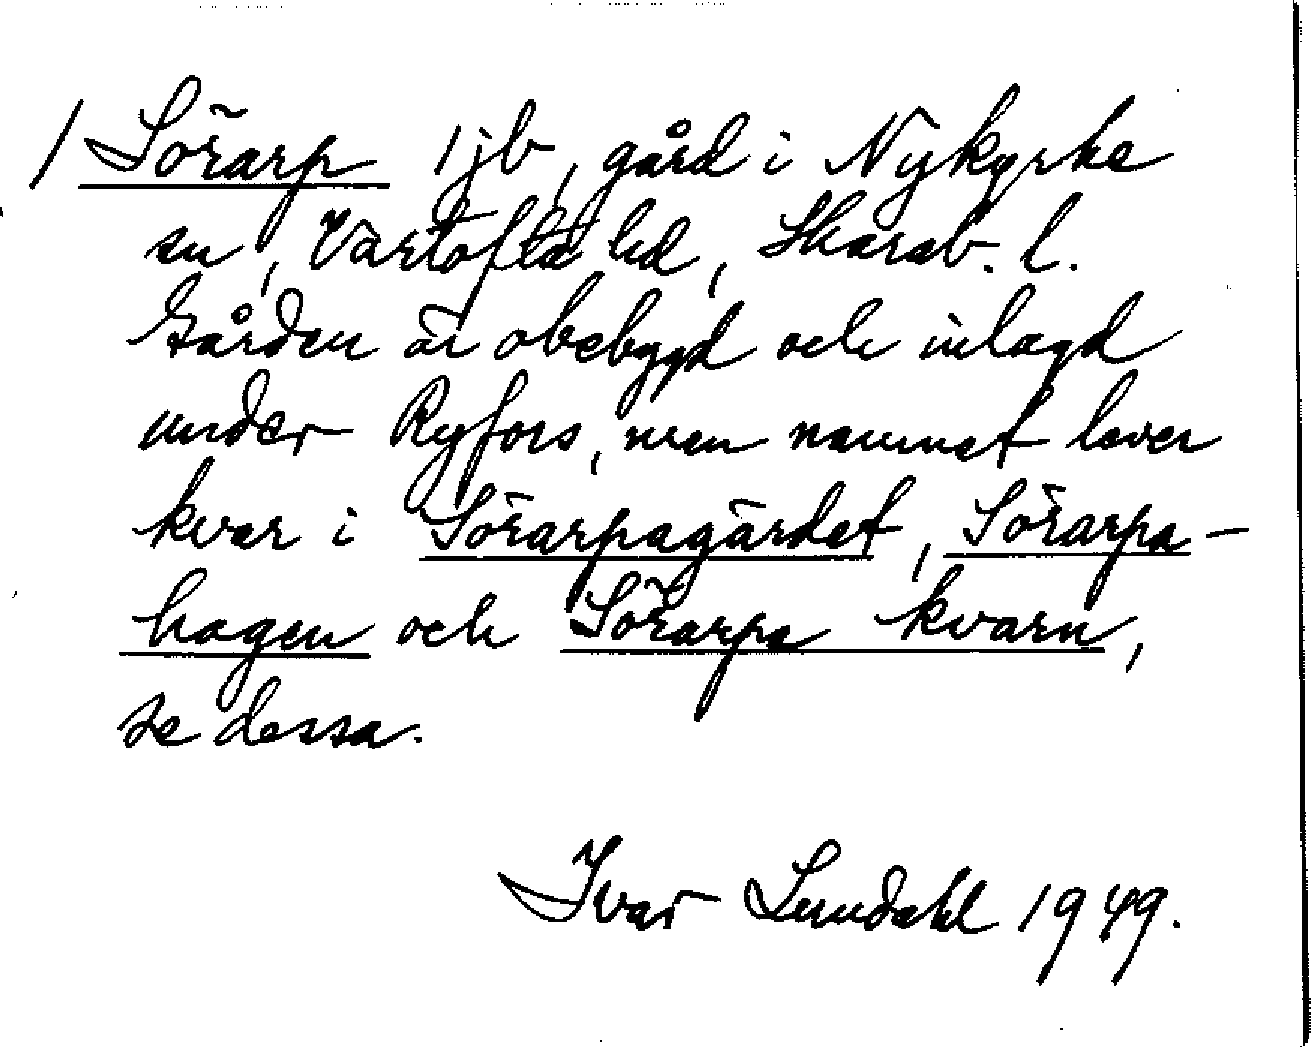 / Sörarp 1 jb, gård i Nykyrke
sn, Vartofta hd, Skarab. l.
Gården är obebygd och inlagd
under Ryfors, men namnet lever
kvar i Sörarpagärdet, Sörarpa-
hagen och Sörarpa kvarn,
se dessa.
Ivar Lundahl 1949.